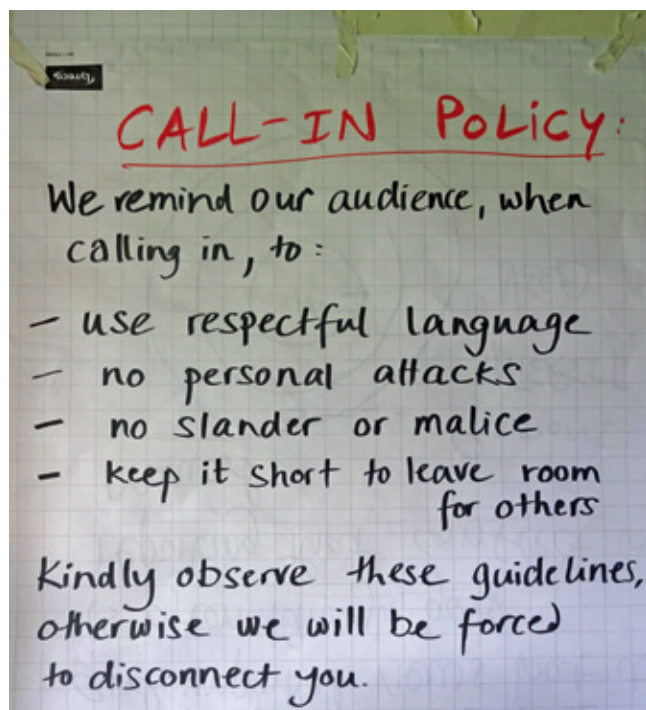 CALL-IN POLICY:
We remind our audience, when
calling in, to:
- use respectful language
- no personal attacks
- no slander or malice
- keep it short to leave room
for others
Kindly observe these guidelines,
otherwise we will be forced
to disconnect you.